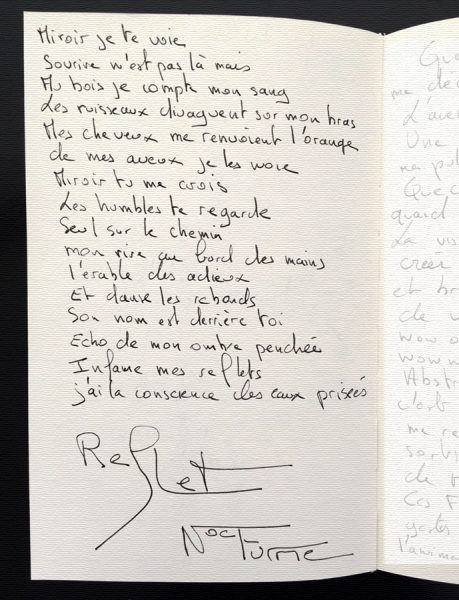 Miroir je te voie
Sourire n'est pas là mais
Au bois je compte mon sang
Les ruisseaux divaguent sur mon bras
Mes cheveux me renvoient l'orange
de mes aveux je les noie
Miroir tu me crois
Les humbles te regarde
Seul sur le chemin
mon rire au bord des mains
l'érable des adieux
Et danse les rebonds
Son nom est derrière toi
Echo de mon ombre penchée
Infame mes reflets
j'ai la conscience des eaux prisées
Reflet
Nocturne
Que
me
L'
Une
ma
Que
quand
La vis
créer
et br
de
wow
wow
Abstr
me re
sorti
de
Ces F
l'anima